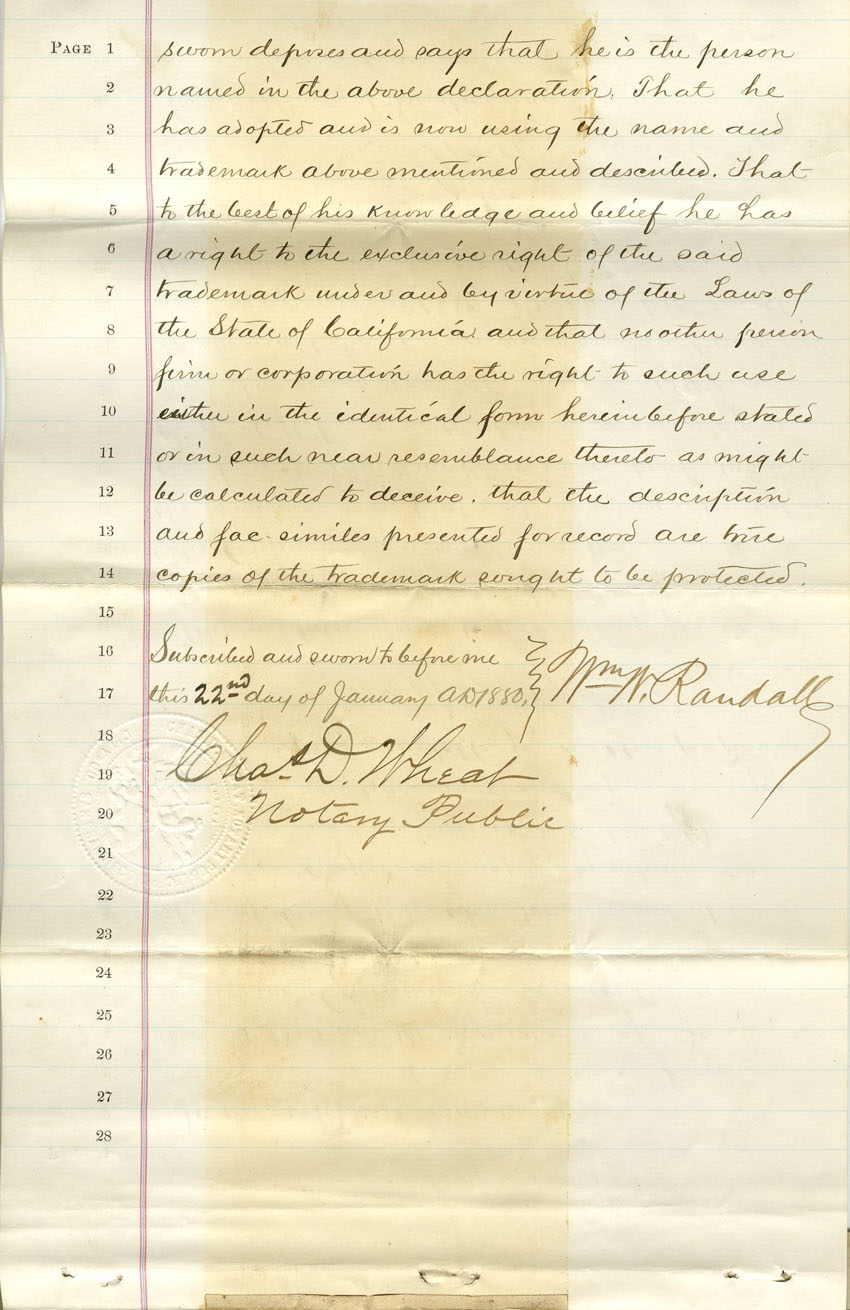 PAGE 1 sworn deposes and says that he is the person
2 named in the above declaration. That he
3 has adopted and is now using the name and
4 trademark above mentioned and described. That
5 to the best of his knowledge and belief he has
6 a right to the exclusive right of the said
7 trademark under and by virtue of the Laws of
8 the State of California and that no other person
9 firm or corporation has the right to such use
10 either in the identical form hereinbefore stated
11 or in such near resemblance thereto as might
12 be calculated to deceive. that the description
13 and fac-similes presented for record are true
14 copies of the trademark sought to be protected.
15
16 Subscribed and sworn to before me
17 this 22nd day of January A.D. 1880, Wm W. Randall
18
19 Chas. D. Wheat
20 Notary Public
21
22
23
24
25
26
27
28